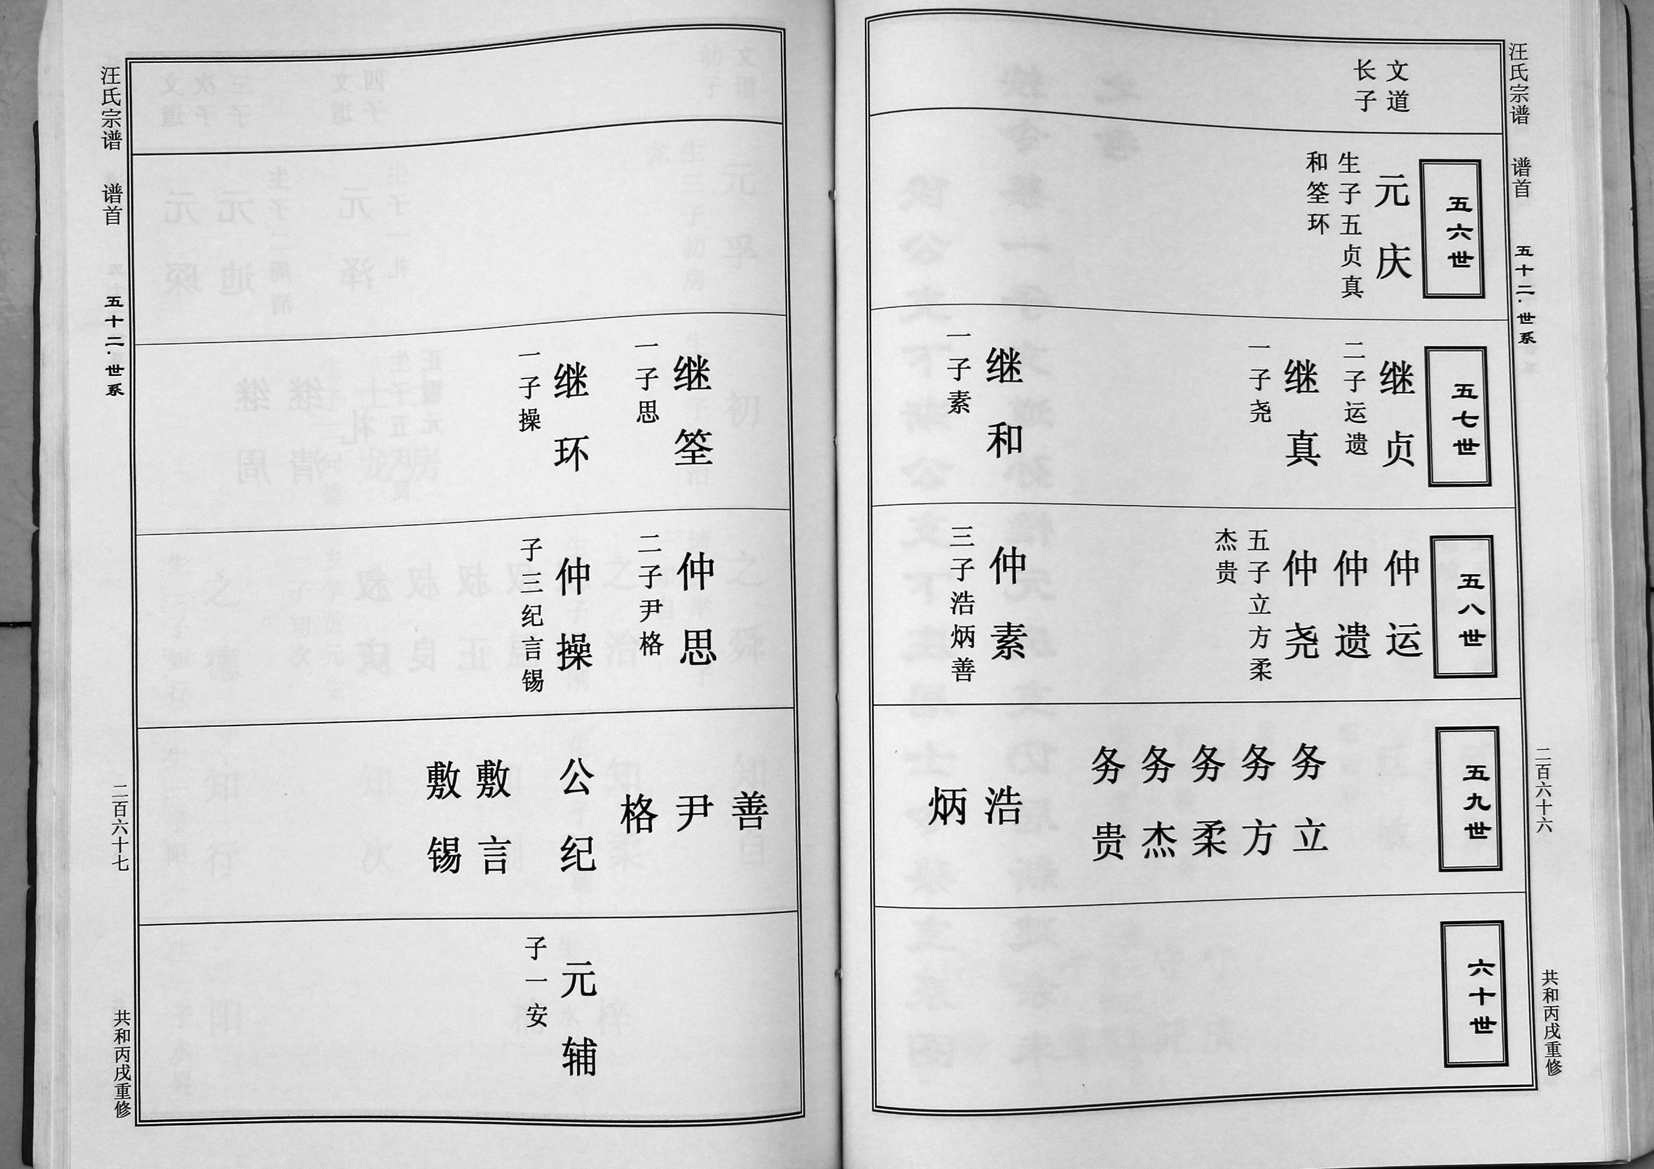 汪氏宗谱 谱首 五十二·世系 二百六十六 共和丙戌重修
文道
长子
五六世
元庆
生子五贞真
和筌环
五七世
继贞
二子运遗
继真
一子尧
继和
一子素
五八世
仲运
仲遗
仲尧
五子立方柔
杰贵
仲素
三子浩炳善
五九世
务立
务方
务柔
务杰
务贵
浩
炳
六十世
继筌
一子思
继环
一子操
仲思
二子尹格
仲操
子三纪言锡
善
尹
格
公纪
敷言
敷锡
元辅
子一安
汪氏宗谱 谱首 五十二·世系 二百六十七 共和丙戌重修